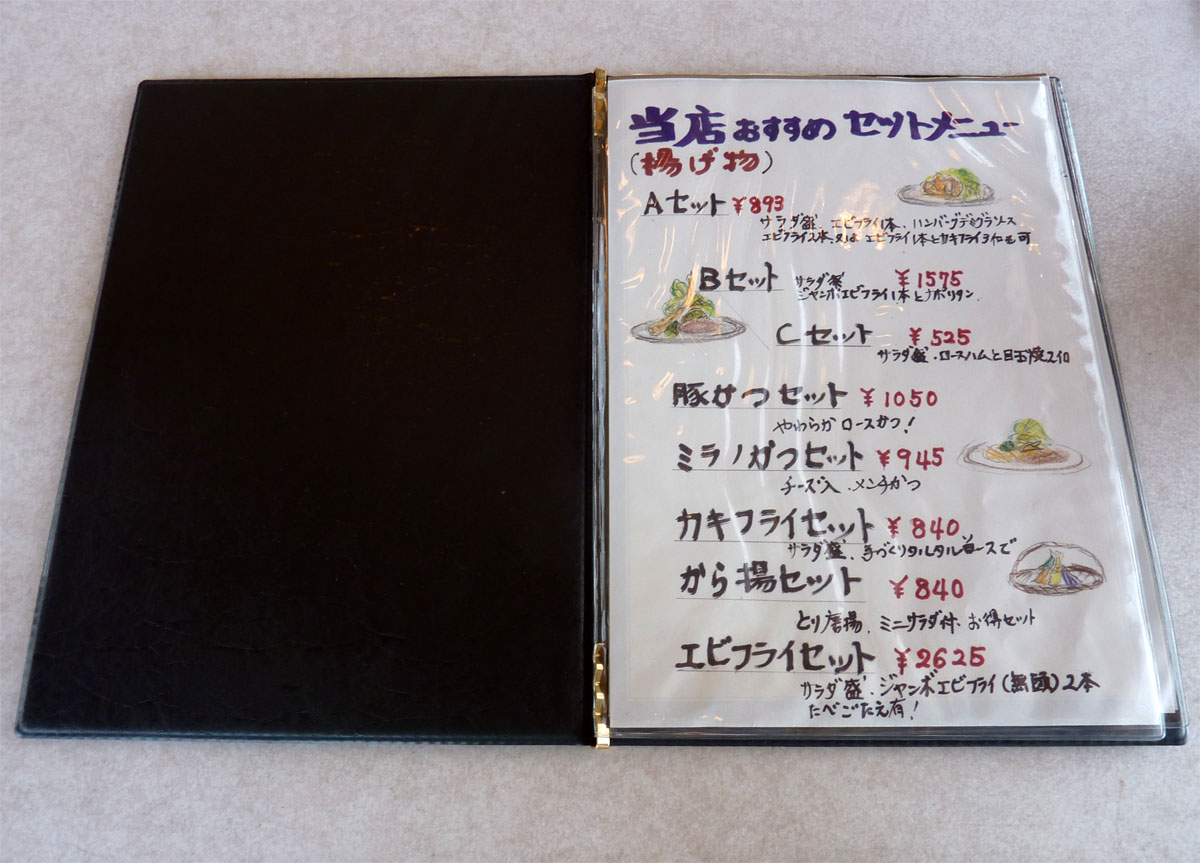 当店おすすめセットメニュー
(揚げ物)
Aセット ¥893
サラダ盛、エビフライ1本、ハンバーグデミグラソース
エビフライ2本、又は エビフライ1本とカキフライ3ケも可
Bセット サラダ盛 ¥1575
ジャンボエビフライ1本とナポリタン.
Cセット ¥525
サラダ盛・ロースハムと目玉焼2ケ
豚かつセット ¥1050
やわらかロースかつ!
ミラノかつセット ¥945
チーズ入、メンチかつ
カキフライセット ¥840
サラダ盛、手づくりタルタルソースで
から揚セット ¥840
とり唐揚、ミニサラダ付、お得セット
エビフライセット ¥2625
サラダ盛・ジャンボエビフライ(無頭)2本
たべごたえ有!